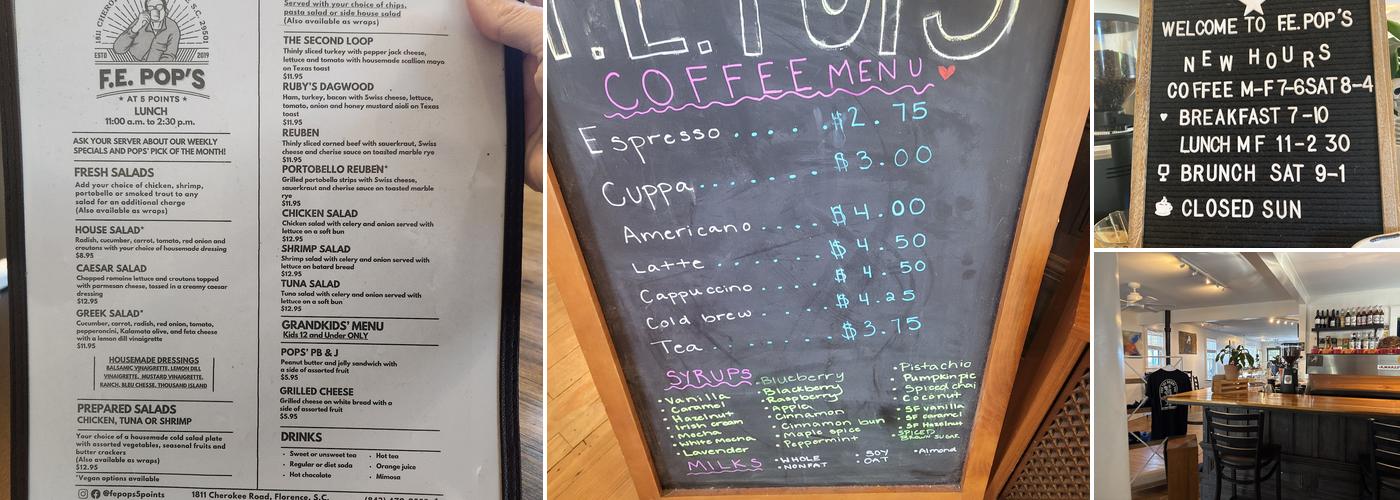 1811 CHEROKEE
S.C. 29501
ESTD 2019
F.E. POP'S
★ AT 5 POINTS ★
LUNCH
11:00 a.m. to 2:30 p.m.
ASK YOUR SERVER ABOUT OUR WEEKLY
SPECIALS AND POPS' PICK OF THE MONTH!
FRESH SALADS
Add your choice of chicken, shrimp,
portobello or smoked trout to any
salad for an additional charge
(Also available as wraps)
HOUSE SALAD*
Radish, cucumber, carrot, tomato, red onion and
croutons with your choice of housemade dressing
$8.95
CAESAR SALAD
Chopped romaine lettuce and croutons topped
with parmesan cheese, tossed in a creamy caesar
dressing
$12.95
GREEK SALAD*
Cucumber, carrot, radish, red onion, tomato,
pepperoncini, Kalamata olive, and feta cheese
with a lemon dill vinaigrette
$11.95
HOUSEMADE DRESSINGS
BALSAMIC VINAIGRETTE, LEMON DILL
VINAIGRETTE, MUSTARD VINAIGRETTE,
RANCH, BLEU CHEESE, THOUSAND ISLAND
PREPARED SALADS
CHICKEN, TUNA OR SHRIMP
Your choice of a housemade cold salad plate
with assorted vegetables, seasonal fruits and
butter crackers
(Also available as wraps)
$12.95
*Vegan options available
@fepops5points
1811 Cherokee Road, Florence, S.C.
Served with your choice of chips,
pasta salad or side house salad
(Also available as wraps)
THE SECOND LOOP
Thinly sliced turkey with pepper jack cheese,
lettuce and tomato with housemade scallion mayo
on Texas toast
$11.95
RUBY'S DAGWOOD
Ham, turkey, bacon with Swiss cheese, lettuce,
tomato, onion and honey mustard aioli on Texas
toast
$11.95
REUBEN
Thinly sliced corned beef with sauerkraut, Swiss
cheese and cherise sauce on toasted marble rye
$11.95
PORTOBELLO REUBEN*
Grilled portobello strips with Swiss cheese,
sauerkraut and cherise sauce on toasted marble
rye
$11.95
CHICKEN SALAD
Chicken salad with celery and onion served with
lettuce on a soft bun
$12.95
SHRIMP SALAD
Shrimp salad with celery and onion served with
lettuce on batard bread
$12.95
TUNA SALAD
Tuna salad with celery and onion served with
lettuce on a soft bun
$12.95
GRANDKIDS' MENU
Kids 12 and Under ONLY
POPS' PB & J
Peanut butter and jelly sandwich with
a side of assorted fruit
$5.95
GRILLED CHEESE
Grilled cheese on white bread with a
side of assorted fruit
$5.95
DRINKS
• Sweet or unsweet tea
• Regular or diet soda
• Hot chocolate
• Hot tea
• Orange juice
• Mimosa
F.E. POPS
COFFEE MENU
Espresso ..... $2.75
Cuppa ....... $3.00
Americano .... $4.00
Latte ....... $4.50
Cappuccino .... $4.50
Cold brew .... $4.25
Tea ....... $3.75
SYRUPS
• Vanilla
• Caramel
• Hazelnut
• Irish cream
• Mocha
• White Mocha
• Lavender
• Blueberry
• Blackberry
• Raspberry
• Apple
• Cinnamon
• Cinnamon bun
• Maple spice
• Peppermint
• Pistachio
• Pumpkin pie
• Spiced chai
• Coconut
• SF vanilla
• SF caramel
• SF Hazelnut
SPICED
BROWN SUGAR
MILKS
• WHOLE
• NONFAT
• SOY
OAT
• Almond
WELCOME TO F.E.POP'S
NEW HOURS
COFFEE M-F 7-6SAT 8-4
♥ BREAKFAST 7-10
LUNCH M F 11-2 30
BRUNCH SAT 9-1
CLOSED SUN